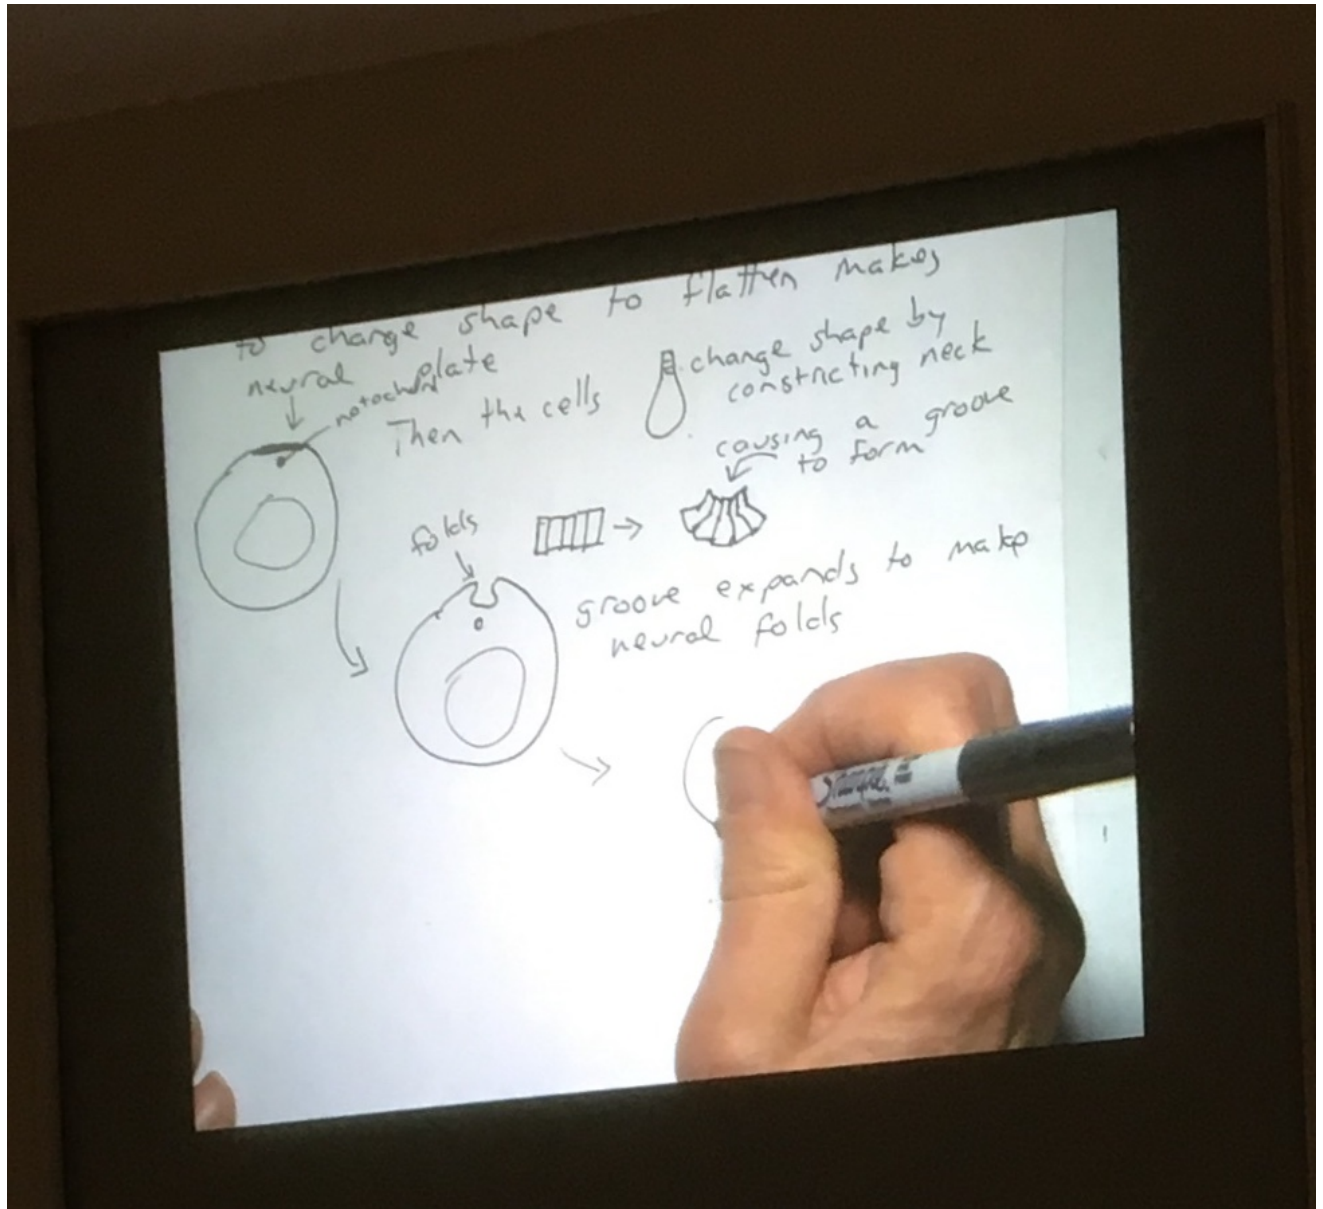 to change shape to flatten makes
neural plate
notochord
Then the cells
change shape by
constricting neck
causing a groove
to form
folds
groove expands to make
neural folds
Sharpie